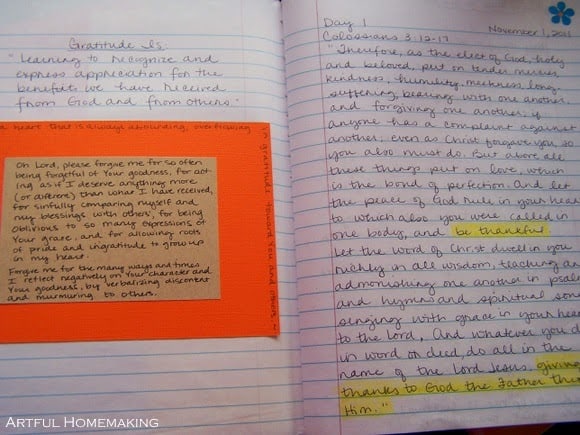 Gratitude Is:
"Learning to recognize and
express appreciation for the
benefits we have received
from God and from others."
a heart that is always abounding, overflowing
in gratitude toward You and others. ~
Oh Lord, please forgive me for so often
being forgetful of Your goodness, for act-
ing as if I deserve anything more
(or different) than what I have received,
for sinfully comparing myself and
my blessings with others, for being
oblivious to so many expressions of
Your grace, and for allowing roots
of pride and ingratitude to grow up
in my heart.
Forgive me for the many ways and times
I reflect negatively on Your character and
Your goodness, by verbalizing discontent
and murmuring to others.
Day 1
November 1, 2011
Colossians 3:12-17
"Therefore, as the elect of God, holy
and beloved, put on tender mercies,
kindness, humility, meekness, long
suffering, bearing with one another,
and forgiving one another, if
anyone has a complaint against
another; even as Christ forgave you, so
you also must do. But above all
these things put on love, which
is the bond of perfection. And let
the peace of God rule in your hear
to which also you were called in
one body, and be thankful.
Let the word of Christ dwell in you
richly in all wisdom, teaching an
admonishing one another in psal
and hymns and spiritual son
singing with grace in your hear
to the Lord. And whatever you d
in word or deed, do all in the
name of the Lord Jesus, giving
thanks to God the Father thro
Him."
ARTFUL HOMEMAKING